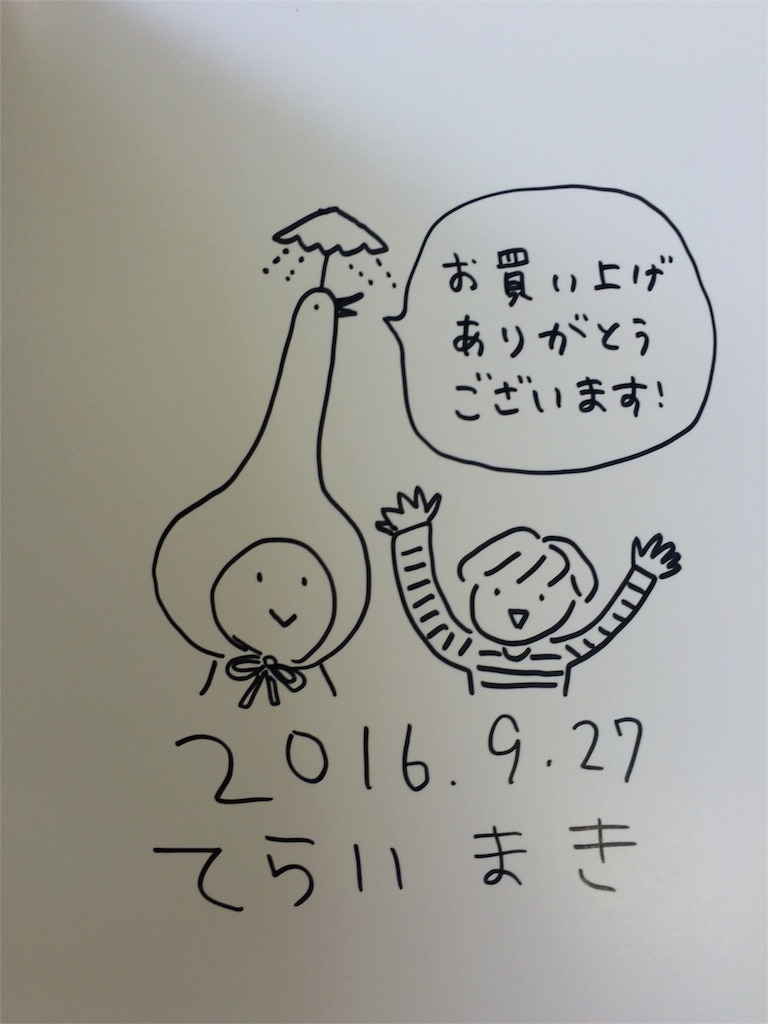 お買い上げ
ありがとう
ございます!
2016.9.27
てらい まき